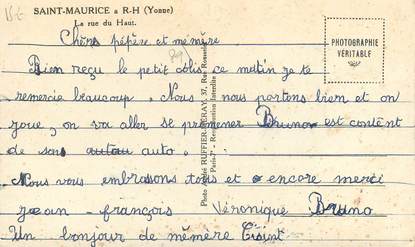 15€
SAINT-MAURICE a R-H (Yonne)
La rue du Haut.
PHOTOGRAPHIE
VÉRITABLE
Chers pépère et mémère
Bien reçu le petit colis ce matin je te
remercie beaucoup. Nous nous portons bien et on
joue, on va aller se promener Bruno est content
de son autau auto.
Nous vous embrassons tous et encore merci
jean - françois Véronique Bruno
Un bonjour de mémère
Photo André RUFFIER-MÉRAY, 37, Rue
Paris-7e - Reproduction Interdite